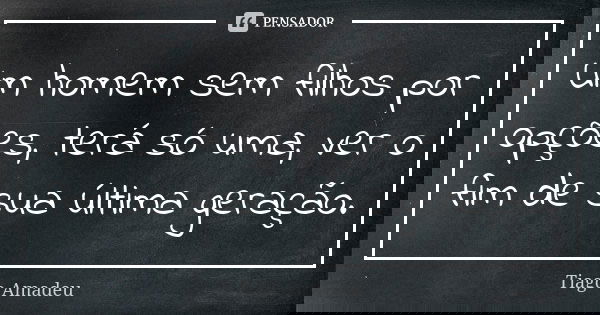 PENSADOR
Um homem sem filhos por
opções, terá só uma, ver o
fim de sua última geração.
Tiago Amadeu